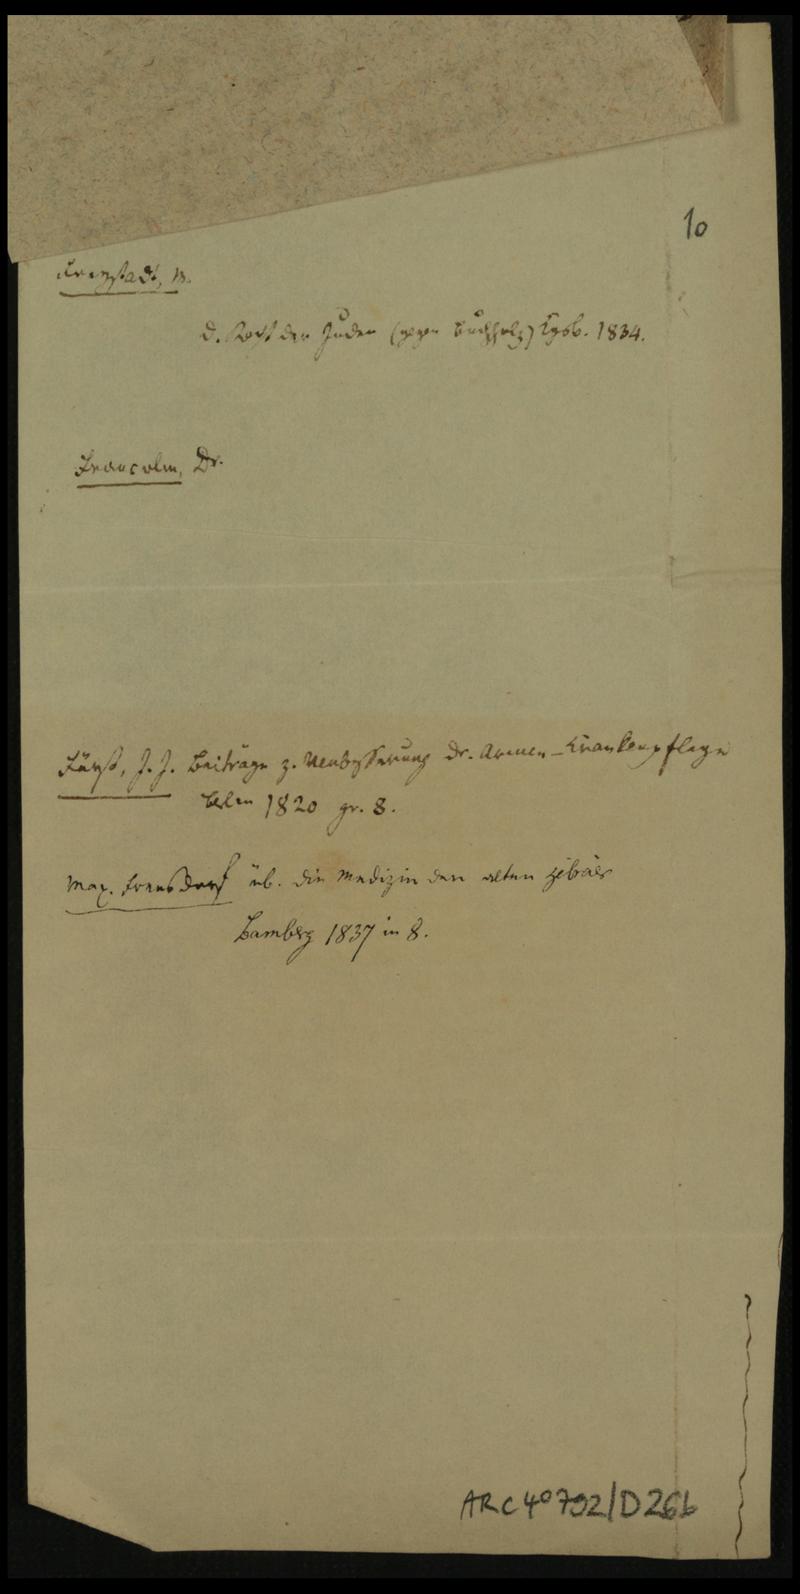 10
Freystadt, M.
d. Recht der Juden (gegen Buchholz) Kgsb. 1834.
Francolm, Dr.
Fürst, J. J. Beiträge z. Verbesserung dr. Armen-Krankenpflege
Berlin 1820 gr. 8.
Max. Frensdorf üb. die Medizin der alten Hebräer
Bamberg 1837 in 8.
ARC 4° 792/D26b